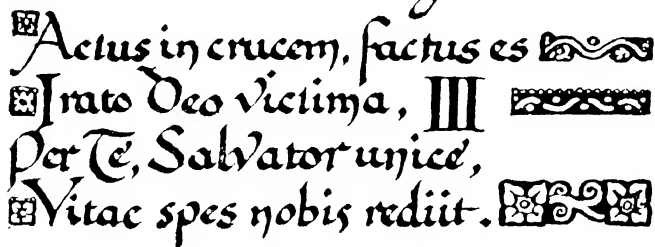 Actus in crucem, factus es
Irato Deo victima, III
Per Te, Salvator unice,
Vitae spes nobis rediit.